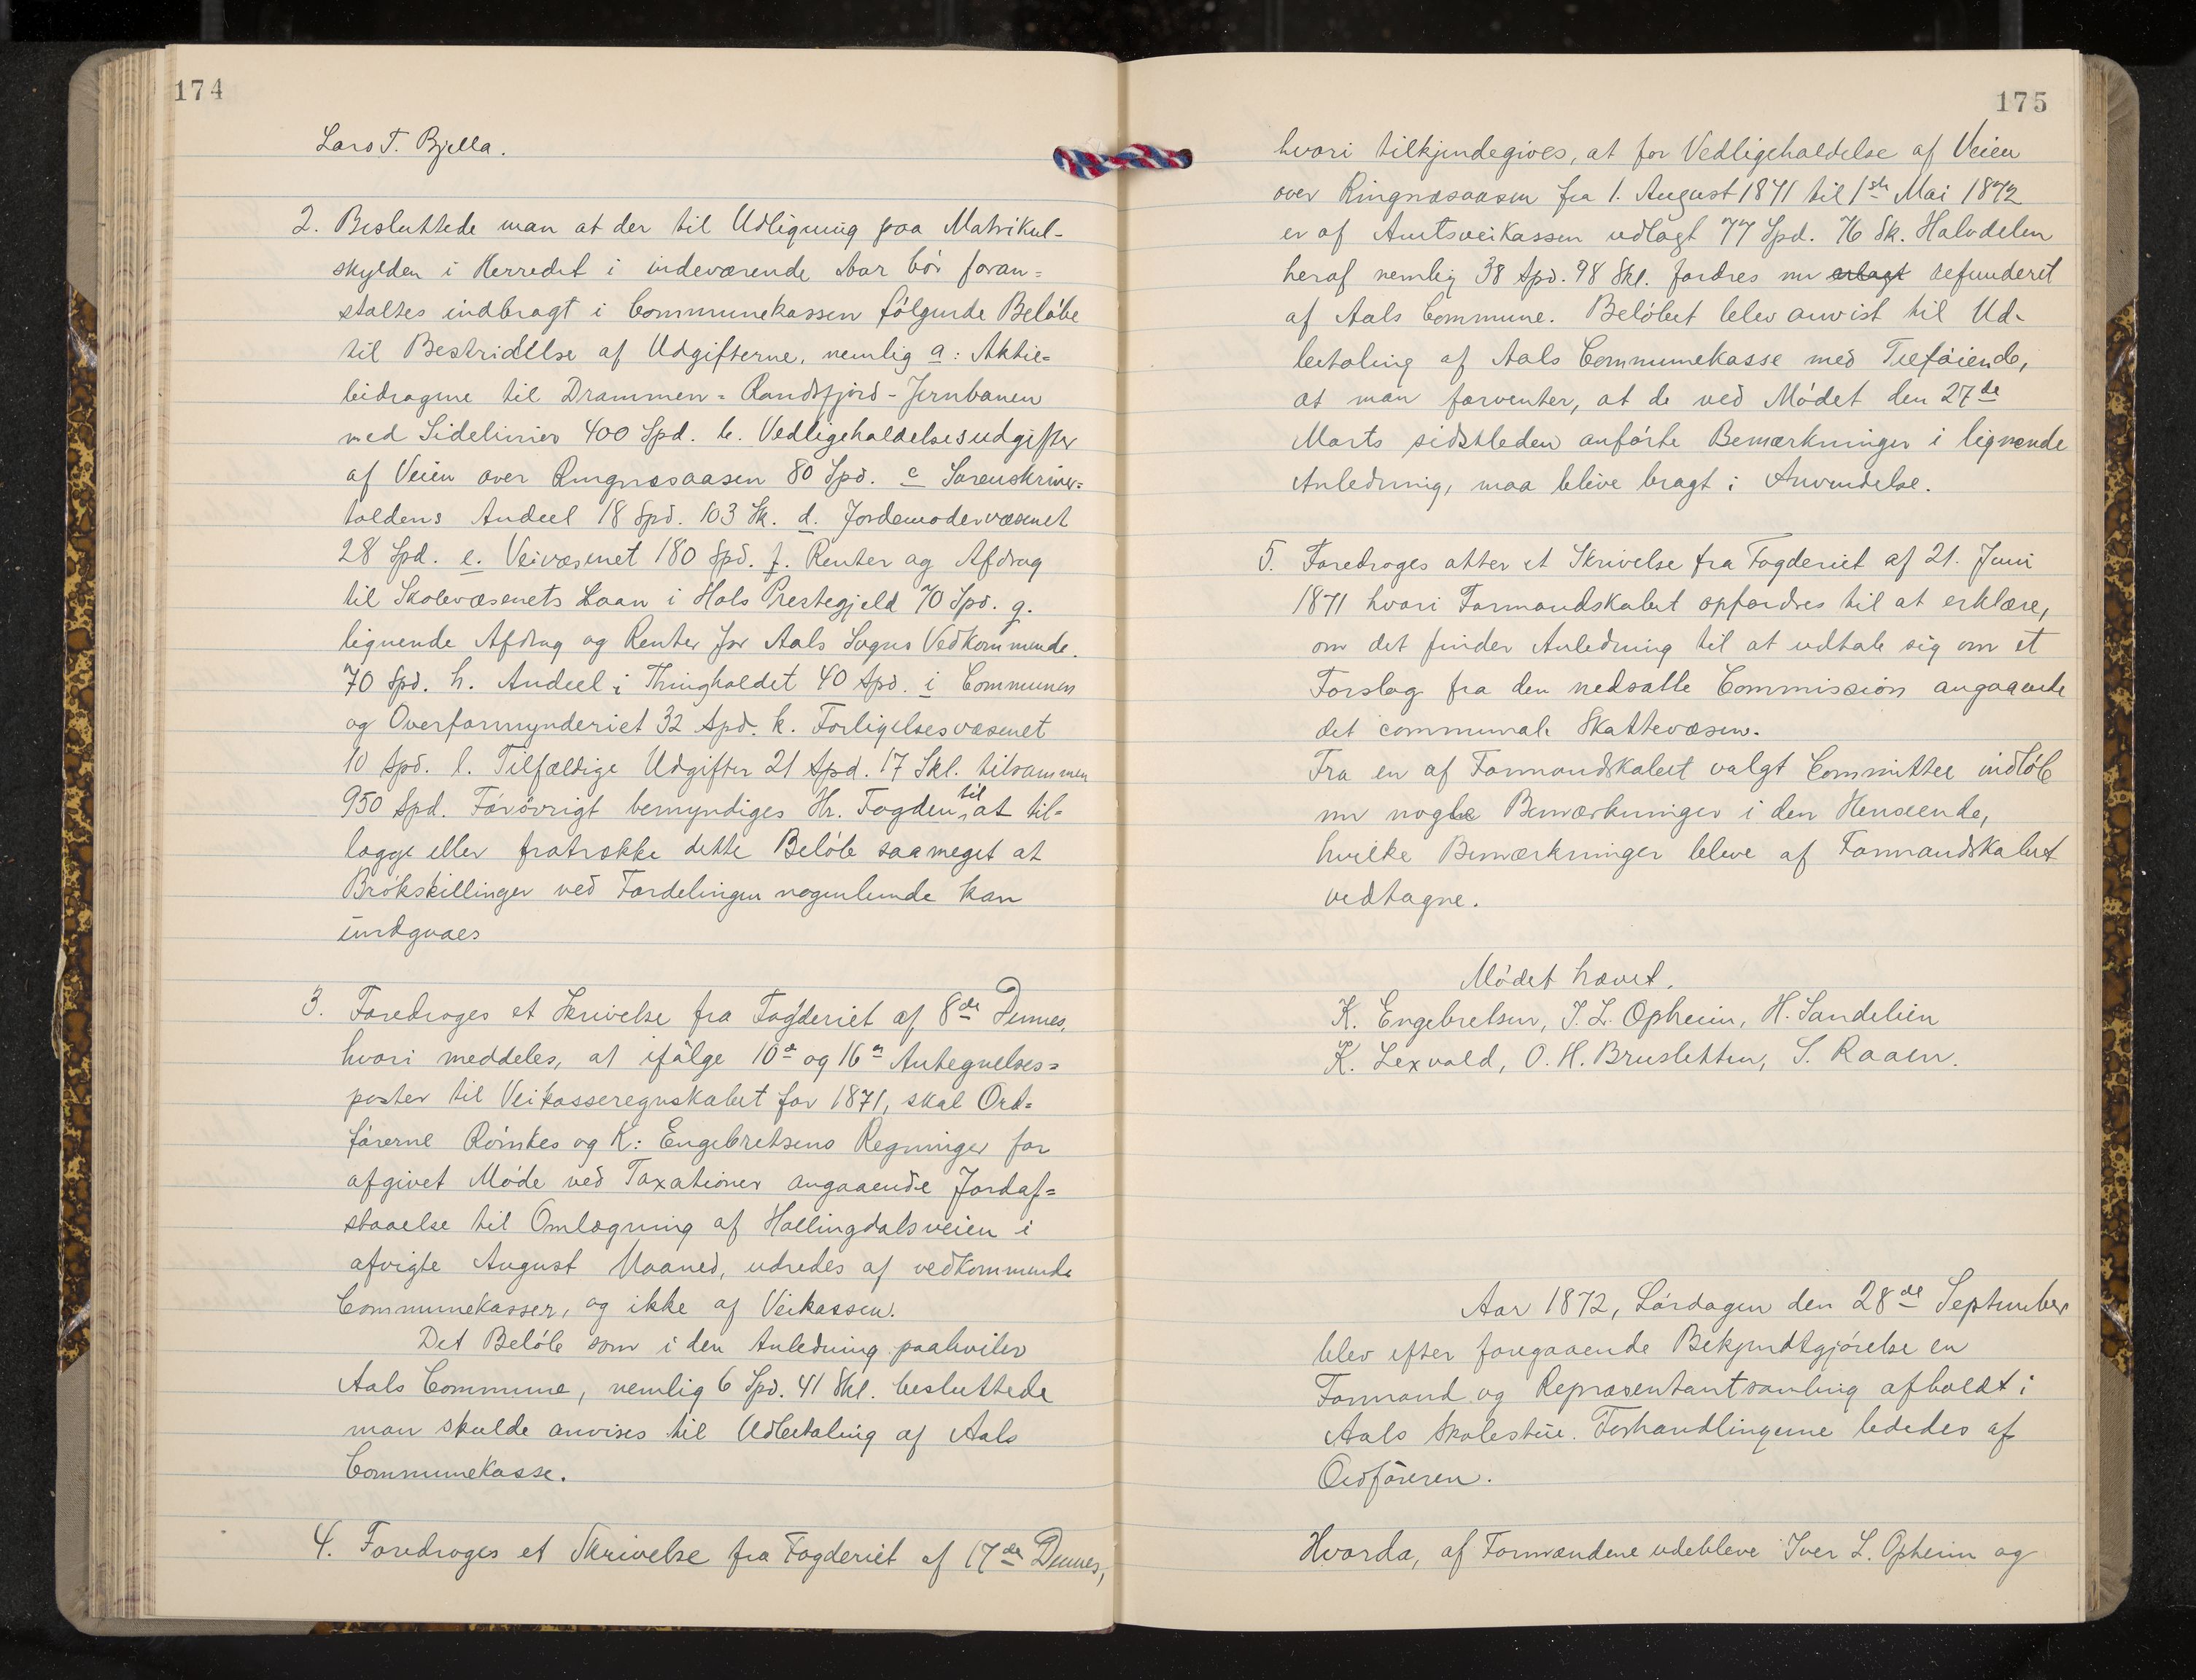 174
Lars T. Bjella.
2. Besluttede man at der til Udligning paa Matrikul-
skylden i Herredet i indeværende Aar bör foran=
staltes indbragt i Communekassen fölgende Belöbe
til Bestridelse af Udgifterne, nemlig a: Aktie=
bidragene til Drammen=Randsfjord-Jernbanen
med Sidelinier 400 Spd. b. Vedligeholdelsesudgifter
af Veien over Ringnæsaasen 80 Spd. c Sorenskriver=
boldens Andeel 18 Spd. 103 Sk. d. Jordemodervæsenet
28 Spd. e. Veivæsenet 180 Spd. f. Renter og Afdrag
til Skolevæsenets Laan i Hols Prestegjeld 70 Spd. g.
lignende Afdrag og Renter for Aals Sogns Vedkommende.
70 Spd. h. Andeel i Thingholdet 40 Spd. i Communen
og Overformynderiet 32 Spd. k. Forligelsesvæsenet
10 Spd. l. Tilfældige Udgifter 21 Spd. 17 Skl. tilsammen
950 Spd. Forövrigt bemyndiges Hr. Fogden til at til=
lægge eller fratrække dette Belöb saameget at
Brökskillinger ved Fordelingen nogenlunde kan
undgaaes
3. Foredroges et Skrivelse fra Fogderiet af 8de Dennes,
hvori meddeles, at ifölge 10de og 16de Antegnelses=
poster til Veikasseregnskabet for 1871, skal Ord=
förerne Röinkes og K: Engebretsens Regninger for
afgivet Möde ved Taxationer angaaende Jordaf=
staaelse til Omlægning af Hallingdalsveien i
afvigte August Maaned, udredes af vedkommende
Communekasser, og ikke af Veikassen.
Det Belöb som i den Anledning paahviler
Aals Commune, nemlig 6 Spd. 41 Skl. besluttede
man skulde anvises til Udbetaling af Aals
Communekasse.
4. Foredroges et Skrivelse fra Fogderiet af 17de Dennes,
175
hvori tilkjendegives, at for Vedligeholdelse af Veien
over Ringnæsaasen fra 1. August 1871 til 1ste Mai 1872
er af Amtsveikassen udlagt 77 Spd. 76 Sk. Halvdelen
heraf nemlig 38 Spd. 98 Skl. fordres nu erlagt refunderet
af Aals Commune. Belöbet blev anvist til Ud-
betaling af Aals Communekasse med Tilföiende,
at man forventer, at de ved Mödet den 27de
Marts sidstleden anförte Bemærkninger i lignende
Anledning, maa blive bragt i Anvendelse.
5. Foredroges atter et Skrivelse fra Fogderiet af 21. Juni
1871 hvori Formandskabet opfordres til at erklære,
om det finder Anledning til at udtale sig om et
Forslag fra den nedsatte Commission angaaende
det communale Skattevæsen.
Fra en af Formandskabet valgt Committee indlöb
nu nogle Bemærkninger i den Henseende,
hvilke Bemærkninger bleve af Formandskabet
vedtagne.
Mödet hævet.
K. Engebretsen, I. L. Opheim, H. Sandelien
K. Lexvold, O. H. Brusletten, S. Raaen.
Aar 1872, Lördagen den 28de September
blev efter foregaaende Bekjendtgjörelse en
Formand og Repræsentantsamling afholdt i
Aals Skolestue. Forhandlingerne lededes af
Ordföreren.
Hvorda, af Formændene udebleve Iver L. Opheim og